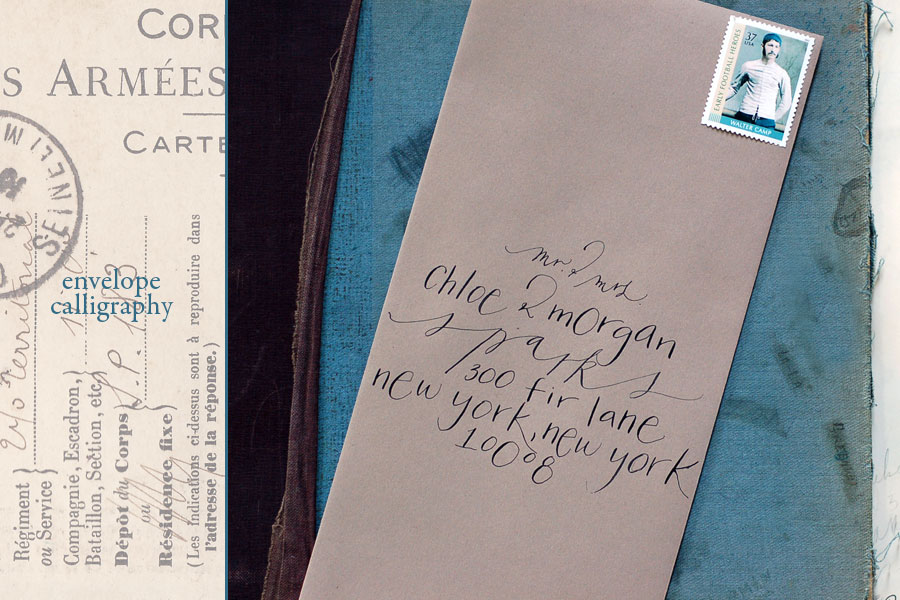 COR
S ARMÉES
CARTE
SEINE
envelope
calligraphy
Régiment }
ou Service }
Compagnie, Escadron, }
Bataillon, Section, etc. }
Dépôt du Corps }
ou
Résidence fixe }
(Les Indications ci-dessus sont à reproduire dans
l'adresse de la réponse.)
37
USA
EARLY FOOTBALL HEROES
WALTER CAMP
mr. & mrs
chloe & morgan
parks
300 fir lane
new york, new york
10008